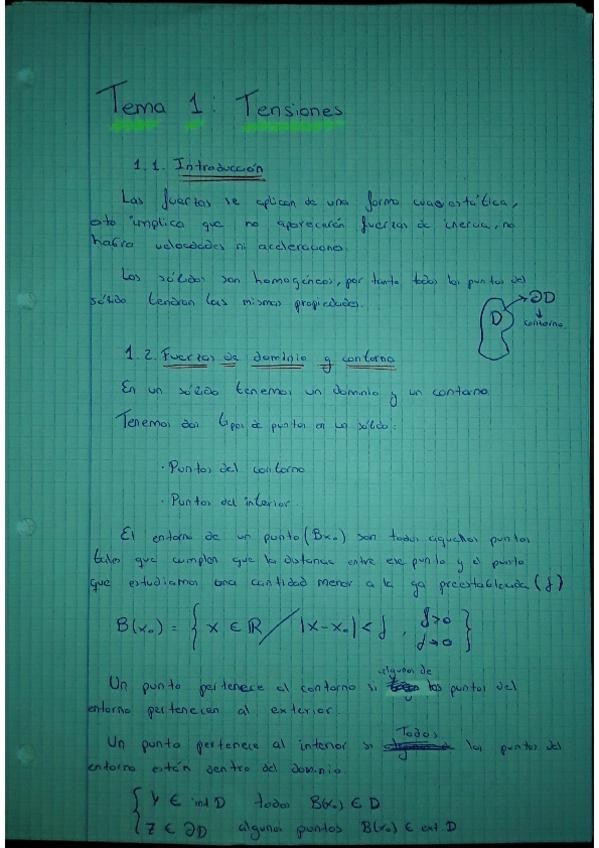 Tema 1: Tensiones
1.1. Introducción
Las fuerzas se aplican de una forma cuasiestática,
esto implica que no aparecerán fuerzas de inercia, no
habrá velocidades ni aceleraciones.
Los sólidos son homogéneos, por tanto todos los puntos del
sólido tendrán las mismas propiedades.
D
∂D
↓
contorno
1.2. Fuerzas de dominio y contorno
En un sólido tenemos un dominio y un contorno
Tenemos dos tipos de puntos en un sólido:
· Puntos del contorno
· Puntos del interior.
El entorno de un punto (Bx₀) son todos aquellos puntos
tales que cumplen que la distancia entre ese punto y el punto
que estudiamos una cantidad menor a la ya preestablecida (δ)
B(x₀) = { x ∈ ℝ / |x-x₀| < δ , δ>0
δ→0 }
algunos de
Un punto pertenece al contorno si los puntos del
entorno pertenecen al exterior.
Todos
Un punto pertenece al interior si los puntos del
entorno están dentro del dominio.
{ y ∈ int D todos B(x₀) ∈ D
z ∈ ∂D algunos puntos B(x₀) ∈ ext. D